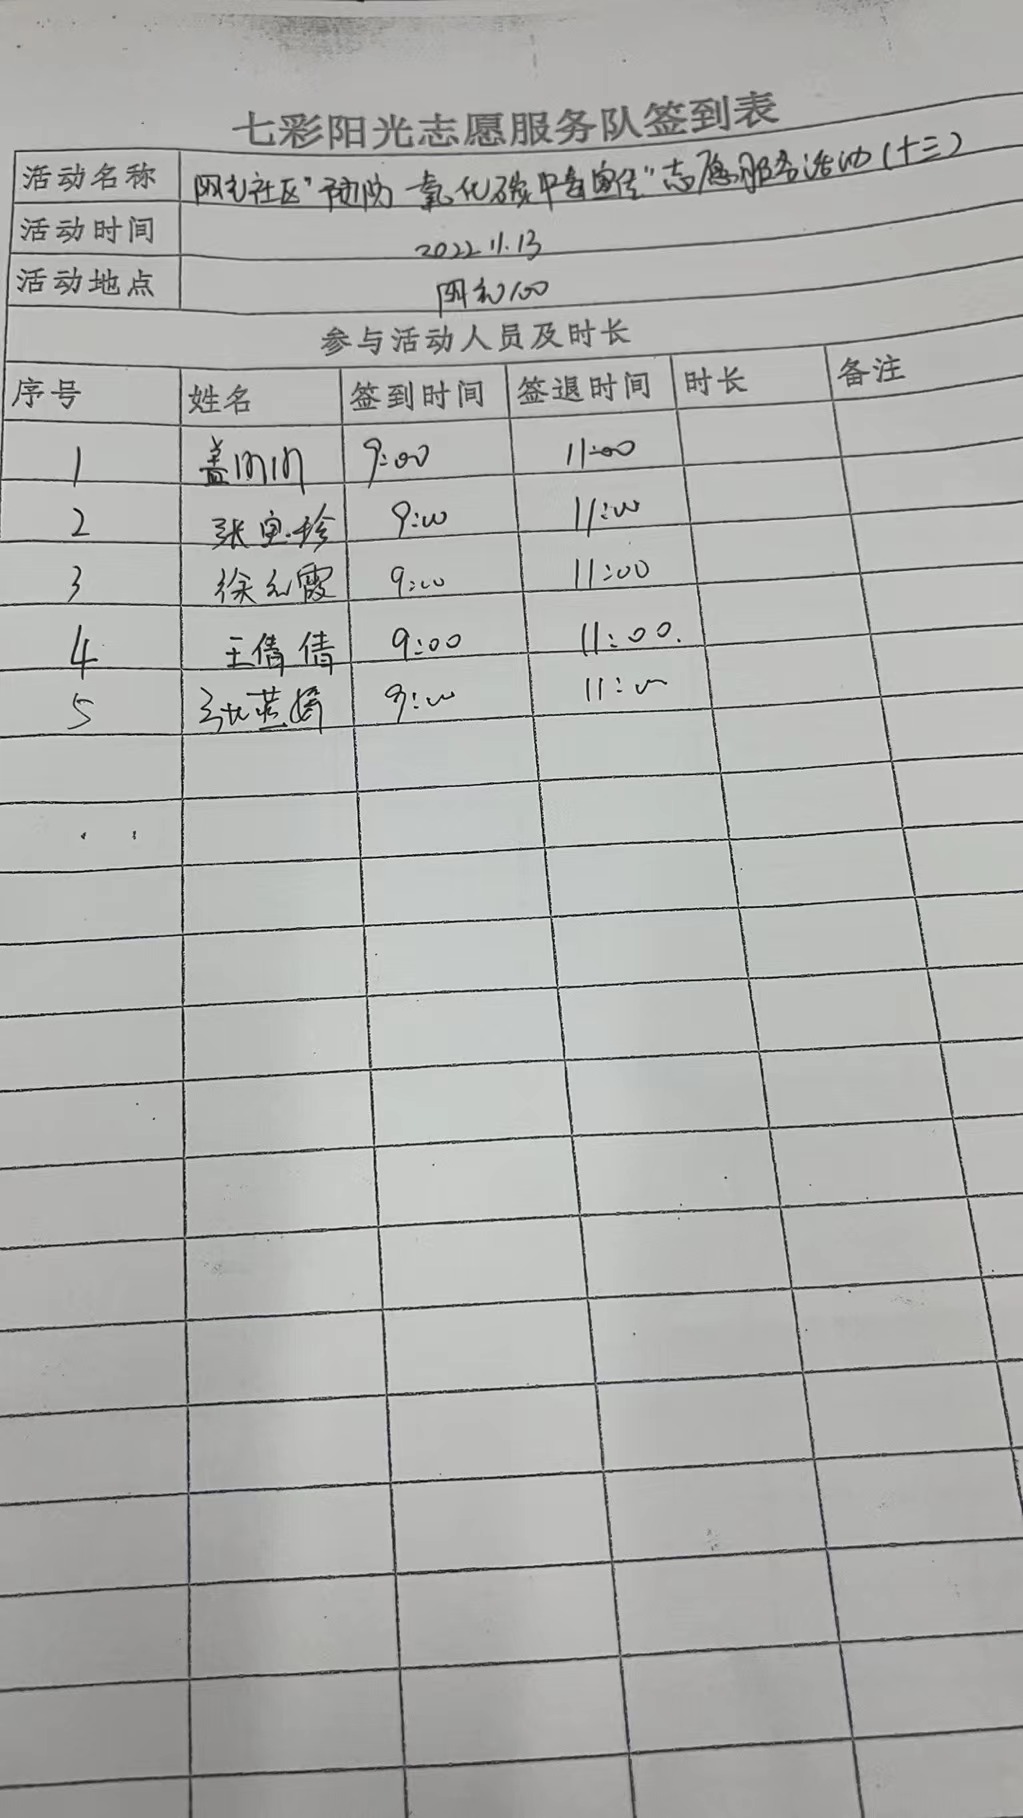 七彩阳光志愿服务队签到表
活动名称 社区"预防一氧化碳中毒宣传"志愿服务活动(十三)
活动时间 2022.11.13
活动地点
参与活动人员及时长
序号 姓名 签到时间 签退时间 时长 备注
1 盖 9:00 11:00
2 张宝珍 9:00 11:00
3 徐元霞 9:00 11:00
4 王倩倩 9:00 11:00.
5 张燕 9:00 11:00